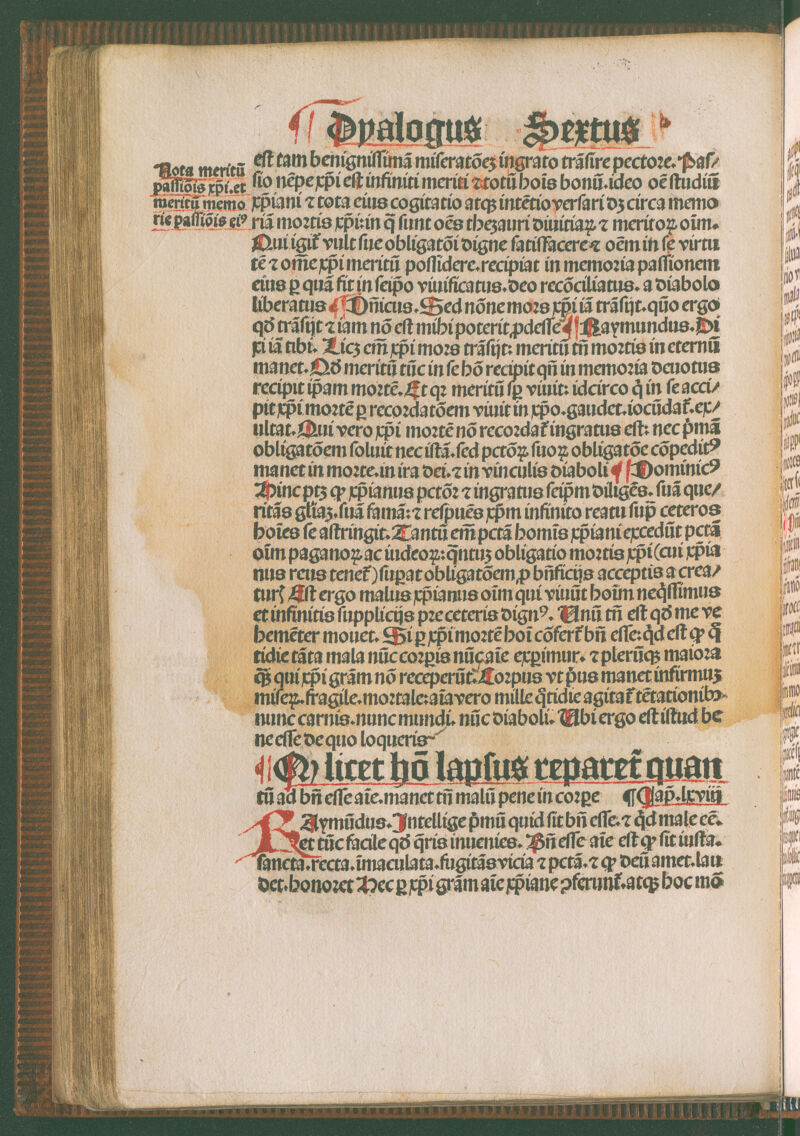 Dyalogus Sextus
Nota meritū
passiōis xp̄i. et
meritū memo
rie passiōis eiꝰ
est tam benignissimā miseratōeꝫ ingrato trāsire pectore. Pas⸗
sio nēpe xp̄i est infiniti meriti ⁊ totū hoīs bonū. ideo oē studiū
xp̄iani ⁊ tota eius cogitatio atqꝫ intētio versari dꝫ circa memo
riā mortis xp̄i: in q̄ sunt oēs thezauri diuitiaꝝ ⁊ meritoꝝ oīm.
Qui igit᷑ vult sue obligatōi digne satissacere ⁊ oēm in se virtu
tē ⁊ om̄e xp̄i meritū possidere. recipiat in memoria passionem
eius ꝑ quā fit in seip̄o viuificatus. deo recōciliatus. a diabolo
liberatus ¶ Dn̄icus. Sed nōne mors xp̄i iā trāsijt. qūo ergo
qd̄ trāsijt ⁊ iam nō est mihi poterit ꝓdesse ¶ Raymundus. Di
xi iā tibi. Licꝫ em̄ xp̄i mors trāsijt: meritū tn̄ mortis in eternū
manet. Qd̄ meritū tūc in se hō recipit qn̄ in memoria deuotus
recipit ip̄am mortē. Et qꝛ meritū sꝑ viuit: idcirco q̇ in se acci⸗
pit xp̄i mortē ꝑ recordatōem viuit in xp̄o. gaudet. iocūdat᷑. ex⸗
ultat. Qui vero xp̄i mortē nō recordat᷑ ingratus est: nec pͥmā
obligatōem soluit nec istā. sed pctōꝝ suoꝝ obligatōe cōpeditꝰ
manet in morte. in ira dei. ⁊ in vinculis diaboli ¶ Dominicꝰ
Hinc ptꝫ ꝙ xp̄ianus pctōr ⁊ ingratus seip̄m diligēs. suā que⸗
ritās gl̄iaꝫ. suā famā: ⁊ respuēs xp̄m infinito reatu suꝑ ceteros
hoīes se astringit. Tantū em̄ pctā homīs xp̄iani excedūt pctā
oīm paganoꝝ ac iudeoꝝ: q̄ntuꝫ obligatio mortis xp̄i (cui xp̄ia
nus reus tenet᷑) suꝑat obligatōem ꝓ bn̄ficijs acceptis a crea⸗
turꝭ Est ergo malus xp̄ianus oīm qui viuūt hoīm neq̇ssimus
et infinitis supplicijs pre ceteris dignꝰ. Unū tn̄ est qd̄ me ve
hemēter mouet. Si ꝑ xp̄i mortē hoī cōfert᷑ bn̄ esse: q̇d est ꝙ q̄
tidie tāta mala nūc corꝑis nūc aīe exꝑimur. ⁊ plerūqꝫ maiora
q̄ꝫ qui xp̄i grām nō receperūt. Corpus vt pͥus manet infirmuꝫ
miseꝝ. fragile. mortale: aīa vero mille q̄tidie agitat᷑ tētationibꝫ
nunc carnis. nunc mundi. nūc diaboli. Ubi ergo est istud be
ne esse de quo loqueris
¶ Ꝙ licet hō lapsus reparet᷑ quan
tū ad bn̄ esse aīe. manet tn̄ malū pene in corꝑe ¶ Cap̄. lxviij
RAymūdus. Intellige pͥmū quid sit bn̄ esse. ⁊ q̇d male eē.
et tūc facile qd̄ q̄ris inuenies. Bn̄ esse aīe est ꝙ sit iusta.
sancta. recta. īmaculata. fugitās vicia ⁊ pctā. ⁊ ꝙ deū amet. lau
det. honoret Hec ꝑ xp̄i grām aīe xp̄iane ꝯferunt᷑. atqꝫ hoc mō